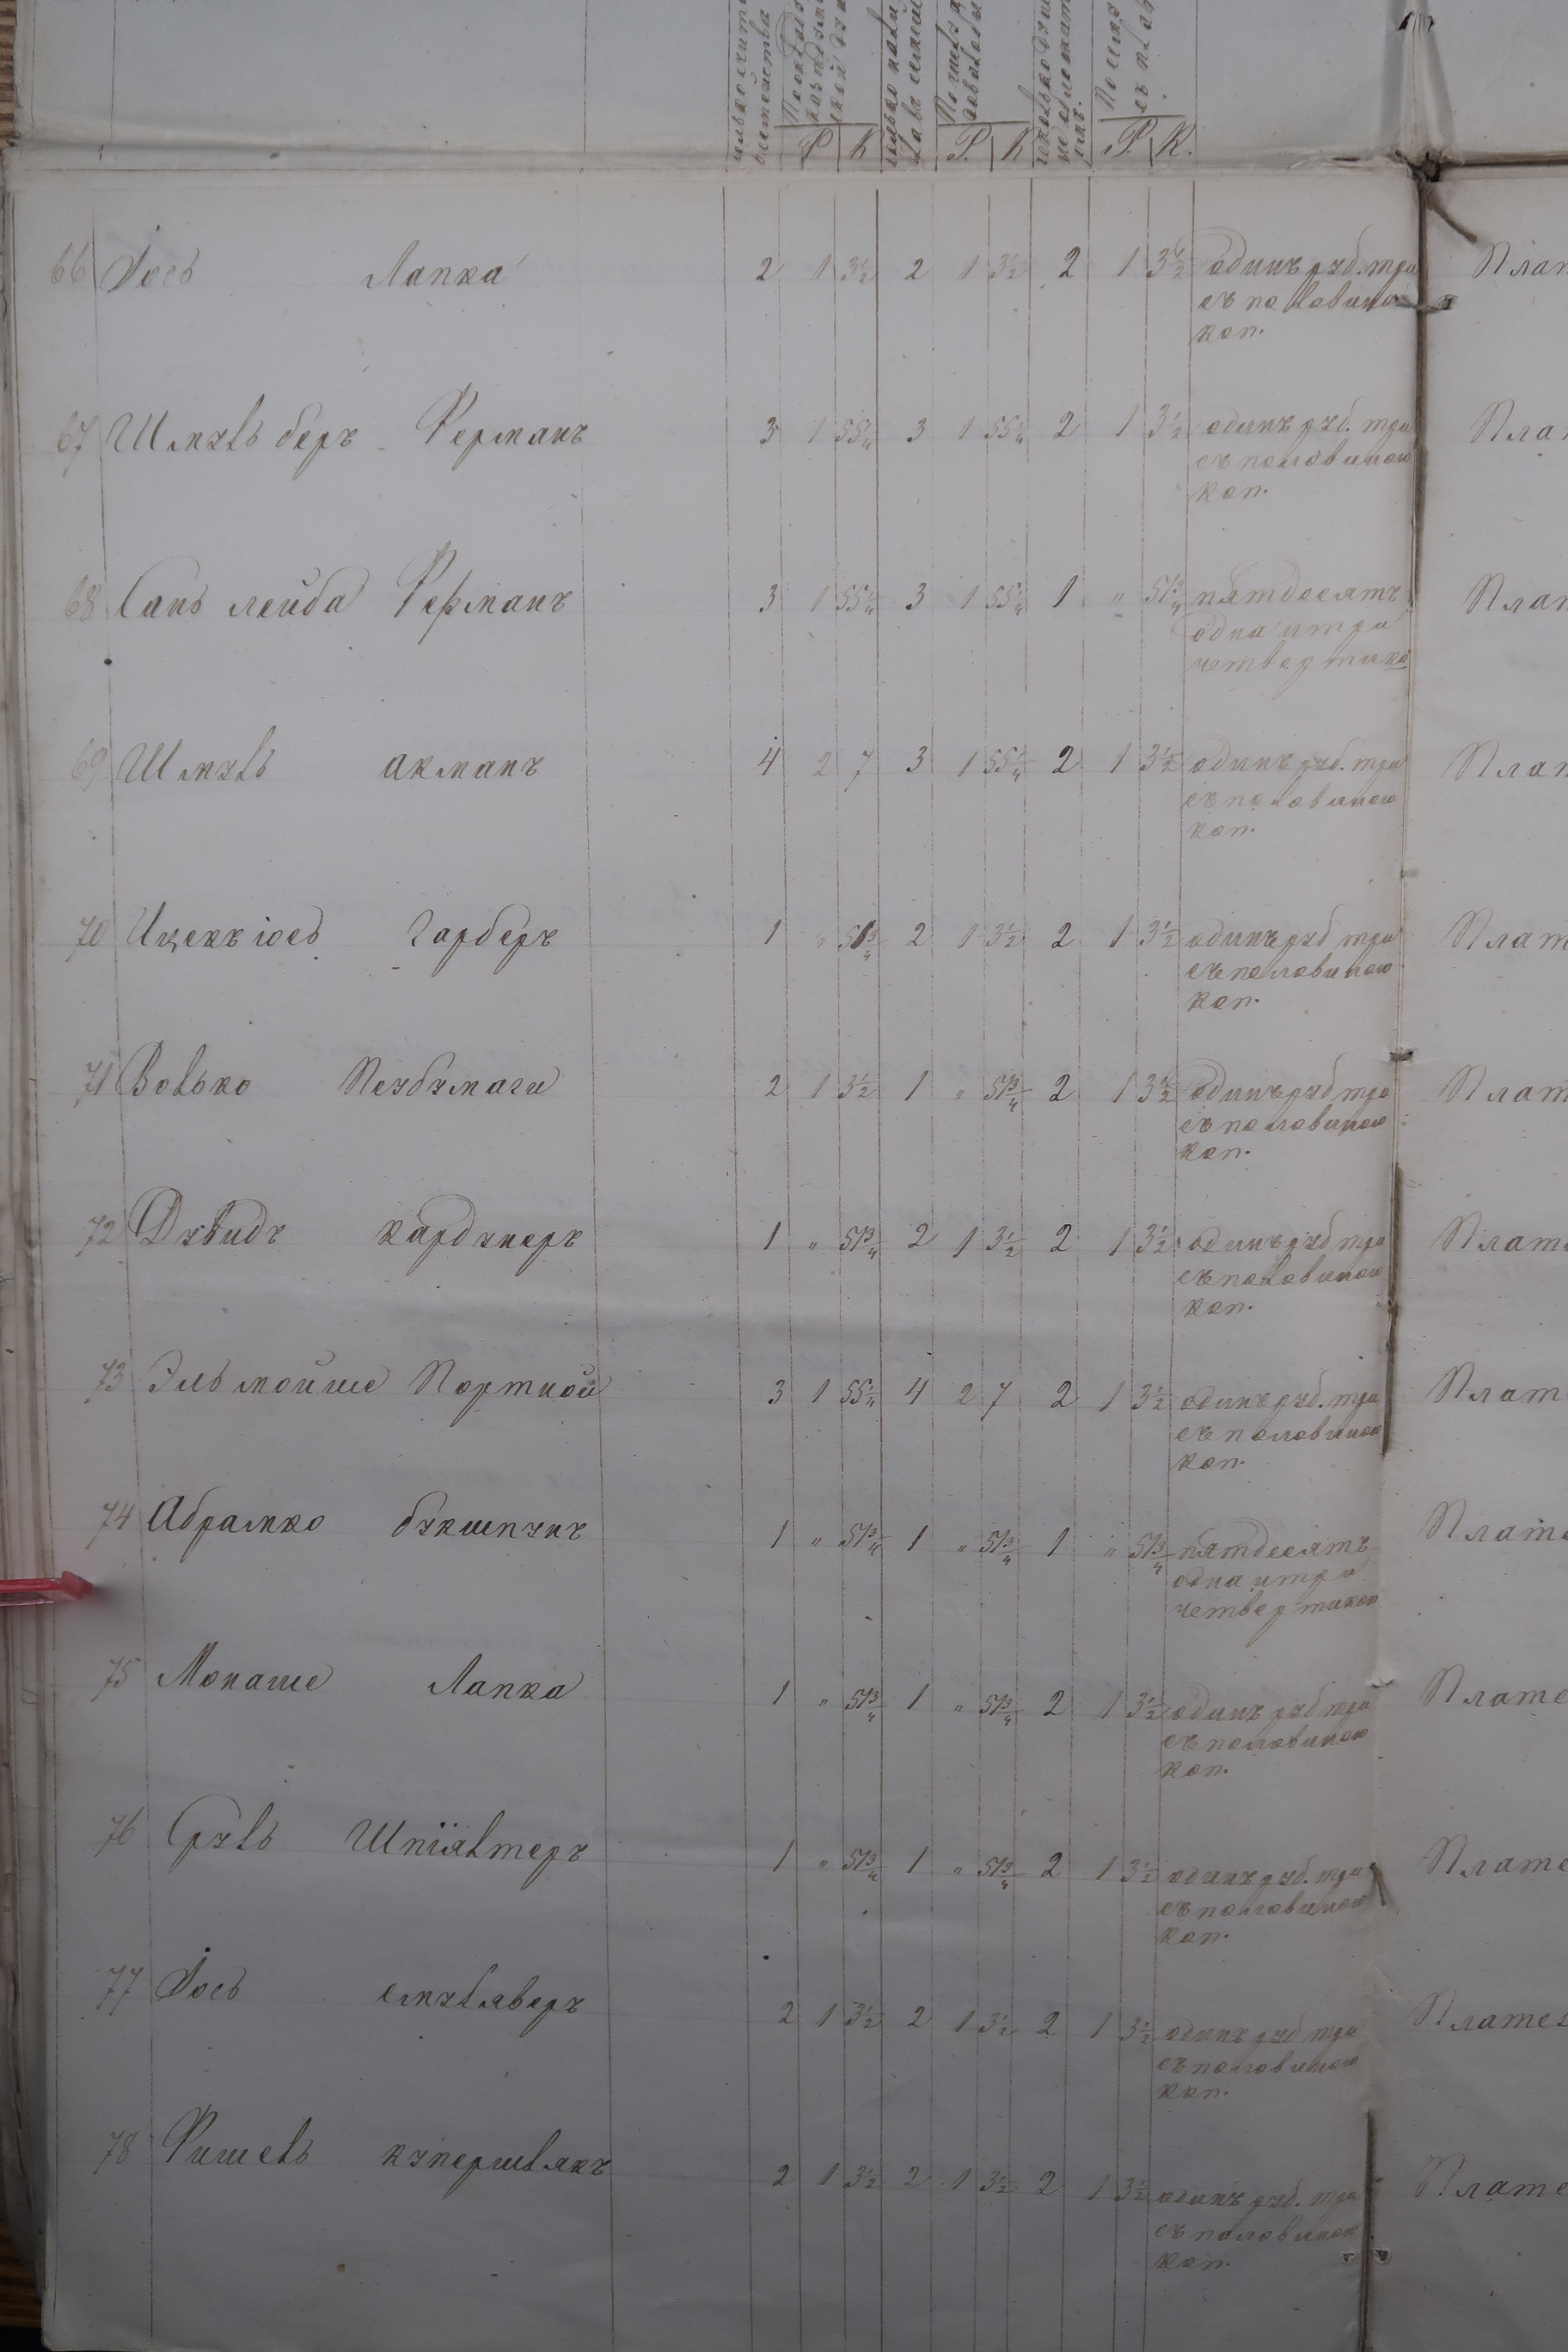 Р К Р. К Р. К.
66 Іось Лапка 2 1 3½ 2 1 3½ 2 1 3½ одинъ руб. три Плат
съ половиною
коп.
67 Шмуль беръ Ферманъ 3 1 55¼ 3 1 55¼ 2 1 3½ одинъ руб. три Плат
съ половиною
коп.
68 Сань лейба Ферманъ 3 1 55¼ 3 1 55¼ 1 „ 51¾ пятдесятъ Плат
одна и три
четверти ко
69 Шмуль акманъ 4 2 7 3 1 55¼ 2 1 3½ одинъ руб. три Плат
съ половиною
коп.
70 Ицекъ іось Гарберъ 1 „ 51¾ 2 1 3½ 2 1 3½ одинъ руб три Плат
съ половиною
коп.
71 Волько 2 1 3½ 1 „ 51¾ 2 1 3½ одинъ руб три Плат
съ половиною
коп.
72 Дувидъ кардунеръ 1 „ 51¾ 2 1 3½ 2 1 3½ одинъ руб три Плате
съ половиною
коп.
73 Эль мойше Портной 3 1 55¼ 4 2 7 2 1 3½ одинъ руб. три Плат
съ половиною
коп.
74 Абрамко букшпунъ 1 „ 51¾ 1 „ 51¾ 1 „ 51¾ пятдесятъ Плате
одна и три
четверти коп
75 Монаше Лапка 1 „ 51¾ 1 „ 51¾ 2 1 3½ одинъ руб три Плате
съ половиною
коп.
76 Сруль Шпіялтеръ 1 „ 51¾ 1 „ 51¾ 2 1 3½ одинъ руб. три Плате
съ половиною
коп.
77 Іось смуляверъ 2 1 3½ 2 1 3½ 2 1 3½ одинъ руб три Плате
съ половиною
коп.
78 Фишель купершлякъ 2 1 3½ 2 1 3½ 2 1 3½ одинъ руб. три Плате
съ половиною
коп.